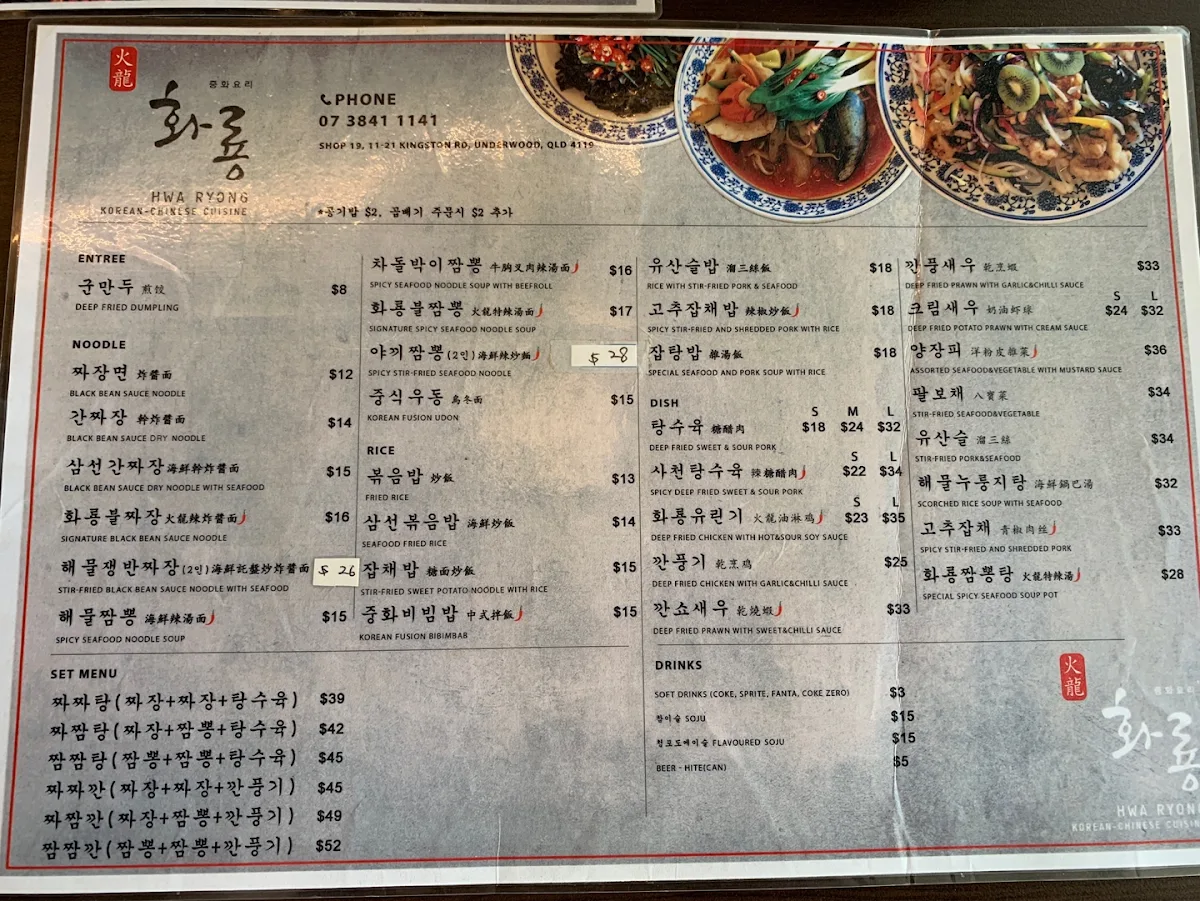 火龍
중화요리
화룡
HWA RYONG
KOREAN-CHINESE CUISINE
PHONE
07 3841 1141
SHOP 19, 11-21 KINGSTON RD, UNDERWOOD, QLD 4119
*공기밥 $2, 곱빼기 주문시 $2 추가
ENTREE
군만두 煎饺 $8
DEEP FRIED DUMPLING
NOODLE
짜장면 炸醬面 $12
BLACK BEAN SAUCE NOODLE
간짜장 幹炸醬面 $14
BLACK BEAN SAUCE DRY NOODLE
삼선간짜장 海鮮幹炸醬面 $15
BLACK BEAN SAUCE DRY NOODLE WITH SEAFOOD
화룡불짜장 火龍辣炸醬面 $16
SIGNATURE BLACK BEAN SAUCE NOODLE
해물쟁반짜장(2인) 海鮮託盤炒炸醬面 $ 26
STIR-FRIED BLACK BEAN SAUCE NOODLE WITH SEAFOOD
해물짬뽕 海鮮辣湯面 $15
SPICY SEAFOOD NOODLE SOUP
차돌박이짬뽕 牛胸叉肉辣湯面 $16
SPICY SEAFOOD NOODLE SOUP WITH BEEFROLL
화룡불짬뽕 火龍特辣湯面 $17
SIGNATURE SPICY SEAFOOD NOODLE SOUP
야끼짬뽕(2인) 海鮮辣炒麵 $ 28
SPICY STIR-FRIED SEAFOOD NOODLE
중식우동 烏冬面 $15
KOREAN FUSION UDON
RICE
볶음밥 炒飯 $13
FRIED RICE
삼선볶음밥 海鮮炒飯 $14
SEAFOOD FRIED RICE
잡채밥 糖面炒飯 $15
STIR-FRIED SWEET POTATO NOODLE WITH RICE
중화비빔밥 中式拌飯 $15
KOREAN FUSION BIBIMBAB
유산슬밥 溜三絲飯 $18
RICE WITH STIR-FRIED PORK & SEAFOOD
고추잡채밥 辣椒炒飯 $18
SPICY STIR-FRIED AND SHREDDED PORK WITH RICE
잡탕밥 雜湯飯 $18
SPECIAL SEAFOOD AND PORK SOUP WITH RICE
DISH
S M L
탕수육 糖醋肉 $18 $24 $32
DEEP FRIED SWEET & SOUR PORK
S L
사천탕수육 辣糖醋肉 $22 $34
SPICY DEEP FRIED SWEET & SOUR PORK
S L
화룡유린기 火龍油淋鸡 $23 $35
DEEP FRIED CHICKEN WITH HOT&SOUR SOY SAUCE
깐풍기 乾烹鸡 $25
DEEP FRIED CHICKEN WITH GARLIC&CHILLI SAUCE
깐쇼새우 乾燒蝦 $33
DEEP FRIED PRAWN WITH SWEET&CHILLI SAUCE
깐풍새우 乾烹蝦 $33
DEEP FRIED PRAWN WITH GARLIC&CHILLI SAUCE
S L
크림새우 奶油虾球 $24 $32
DEEP FRIED POTATO PRAWN WITH CREAM SAUCE
양장피 洋粉皮雜菜 $36
ASSORTED SEAFOOD&VEGETABLE WITH MUSTARD SAUCE
팔보채 八寶菜 $34
STIR-FRIED SEAFOOD&VEGETABLE
유산슬 溜三絲 $34
STIR-FRIED PORK&SEAFOOD
해물누룽지탕 海鮮鍋巴湯 $32
SCORCHED RICE SOUP WITH SEAFOOD
고추잡채 青椒肉丝 $33
SPICY STIR-FRIED AND SHREDDED PORK
화룡짬뽕탕 火龍特辣湯 $28
SPECIAL SPICY SEAFOOD SOUP POT
SET MENU
짜짜탕(짜장+짜장+탕수육) $39
짜짬탕(짜장+짬뽕+탕수육) $42
짬짬탕(짬뽕+짬뽕+탕수육) $45
짜짜깐(짜장+짜장+깐풍기) $45
짜짬깐(짜장+짬뽕+깐풍기) $49
짬짬깐(짬뽕+짬뽕+깐풍기) $52
DRINKS
SOFT DRINKS (COKE, SPRITE, FANTA, COKE ZERO) $3
참이슬 SOJU $15
청포도에이슬 FLAVOURED SOJU $15
BEER - HITE(CAN) $5
火龍
중화요리
화룡
HWA RYONG
KOREAN-CHINESE CUISINE